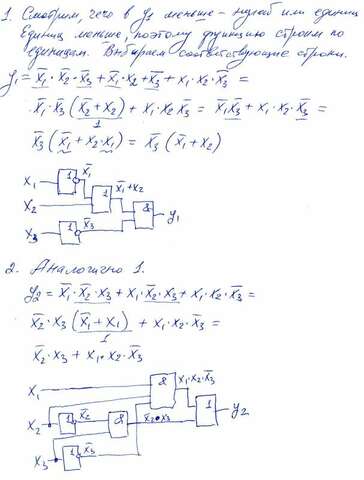 1. Смотрим, чего в y₁ меньше - нулей или единиц
Единиц меньше, поэтому функцию строим по
единицам. Выбираем соответствующие строки.
y₁ = x̅₁·x̅₂·x̅₃ + x̅₁·x₂·x̅₃ + x₁·x₂·x̅₃ =
x̅₁·x̅₃(x̅₂+x₂) + x₁·x₂·x̅₃ = x̅₁x̅₃ + x₁·x₂·x̅₃ =
1
x̅₃(x̅₁+x₂·x₁) = x̅₃(x̅₁+x₂)
x₁ 1 x̅₁
x₂ 1 x̅₁+x₂
x₃ 1 x̅₃ & y₁
2. Аналогично 1.
y₂ = x̅₁·x̅₂·x₃ + x₁·x̅₂·x₃ + x₁·x₂·x̅₃ =
x̅₂·x₃(x̅₁+x₁) + x₁·x₂·x̅₃ =
1
x̅₂·x₃ + x₁·x₂·x̅₃
x₁ & x₁·x₂·x̅₃
x₂ 1 x̅₂ & x̅₂·x₃ 1 y₂
x₃ 1 x̅₃